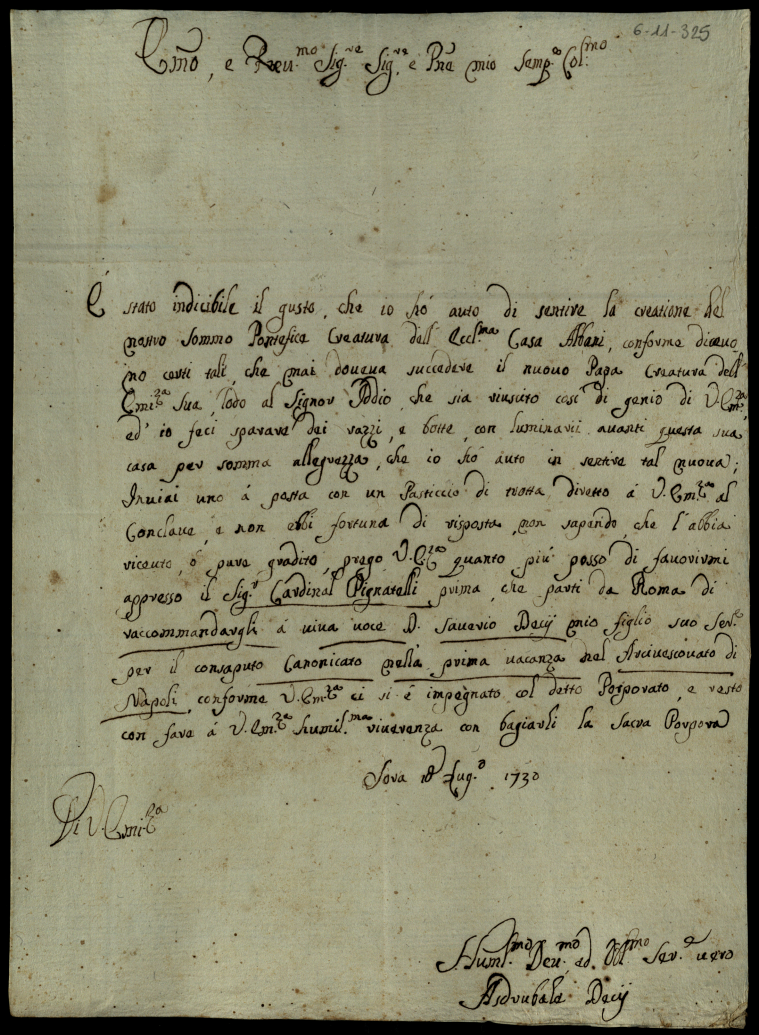 6-11-325
Em̃o, e Reu.mo Sig.re Sig.re e Pñe mio semp.e Col.mo
É stato indicibile il gusto, che io hó auto di sentire la creatione del
nostro Sommo Pontefice Creatura dell' Eccl.ma Casa Albani, conforme diceuo
no certi tali, che mai doueua succedere il nuouo Papa Creatura dell'
Emi.za Sua, lodo al Signor Iddio, che sia riuscito cosi di genio di V. Em.za,
ed' io feci sparare dei razzi, e botte, con luminarii auanti questa sua
casa per somma allegrezza, che io hó auto in sentire tal nuoua;
Inuiai uno á posta con un Pasticcio di trotta diretto á V. Em.za al
Conclaue, e non ebbi fortuna di risposta, non sapendo, che l'abbia
riceuto, ó pure gradito, prego V. E.za quanto piú posso di fauorirmi
appresso il Sig.r Cardinal Pignatelli prima, che parti da Roma di
raccommandargli á viua voce D. Sauerio Decij mio figlio suo Ser.e
per il consaputo Canonicato nella prima vacanza nel Arciuescouato di
Napoli, conforme V. Em.za ci si é impegnato col detto Porporato, e resto
con fare á V. Em.za humil.ma riuerenza con bagiarli la Sacra Porpora
Sora 18 Lug.o 1730
Di V. Emi.za
Huml.mo Deu.mo ed Obl.mo Ser.e uero
Asdrubale Decij